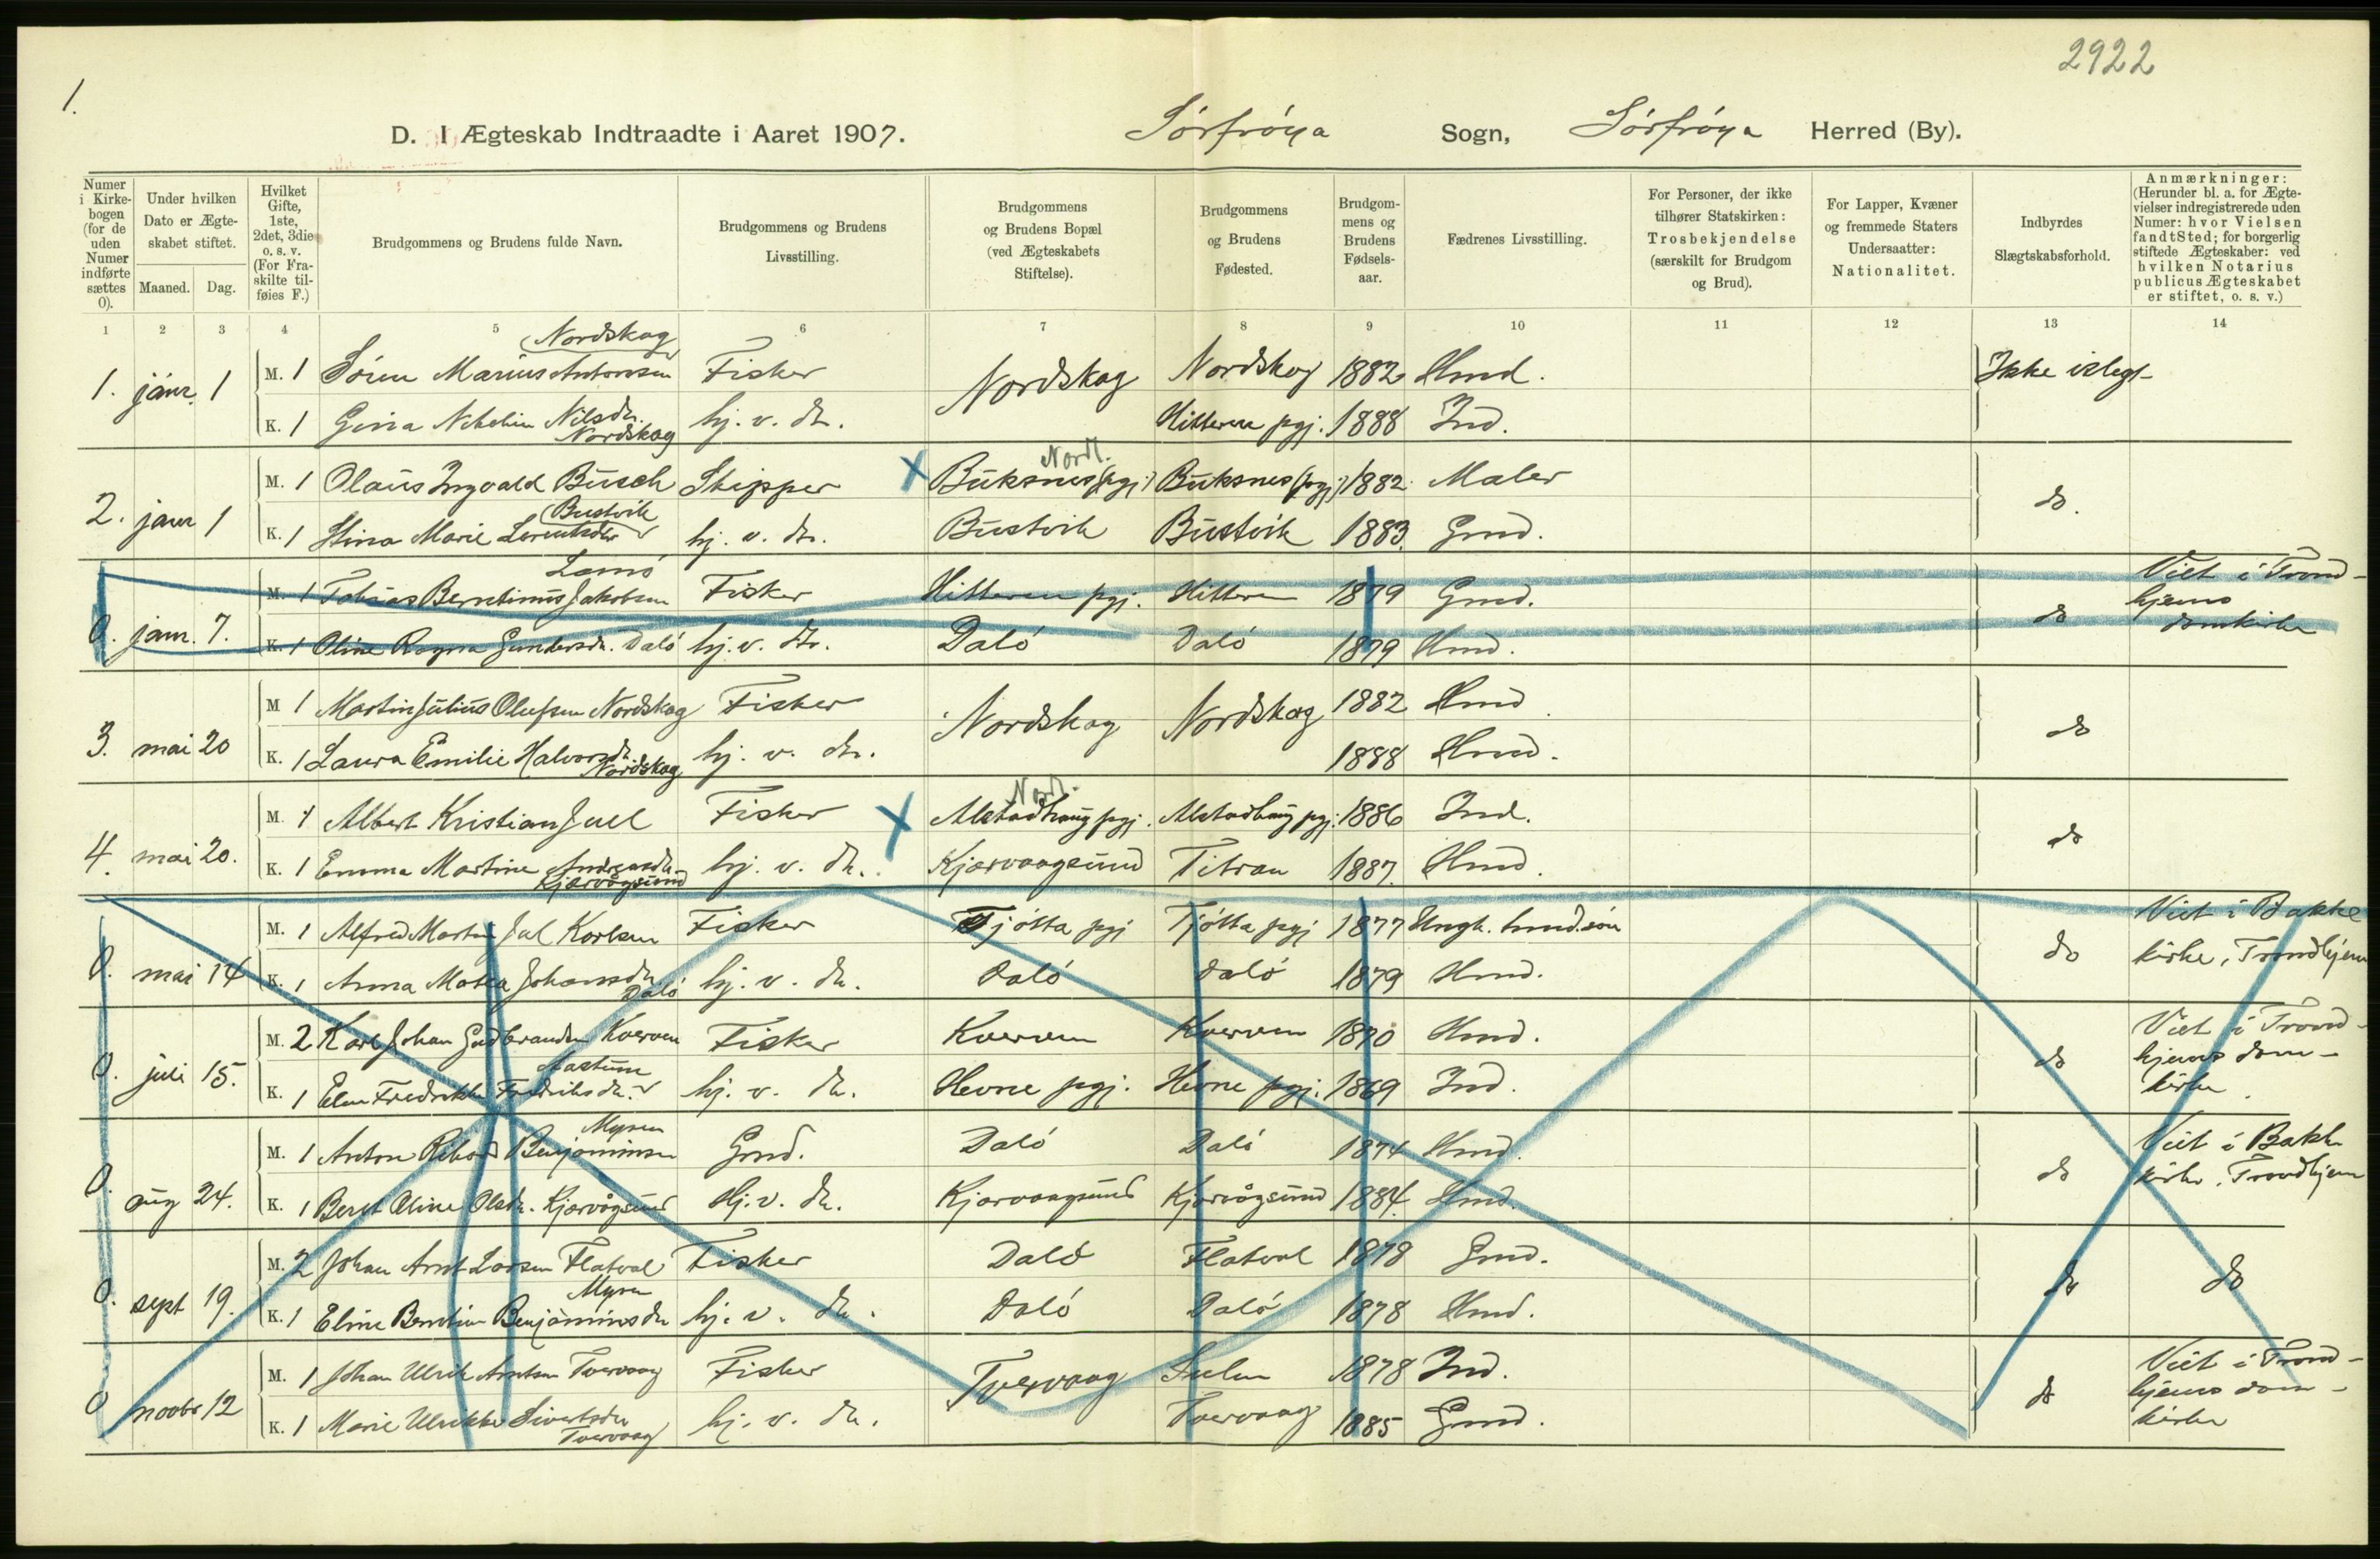 2922
1.
D. I Ægteskab Indtraadte i Aaret 1907. Sørfrøya Sogn, Sørfrøya Herred (By).
Numer i Kirkebogen (for de uden Numer indførte sættes 0).
Under hvilken Dato er Ægteskabet stiftet.
Maaned. Dag.
Hvilket Gifte, 1ste, 2det, 3die o. s. v. (For Fraskilte tilføies F.)
Brudgommens og Brudens fulde Navn.
Brudgommens og Brudens Livsstilling.
Brudgommens og Brudens Bopæl (ved Ægteskabets Stiftelse).
Brudgommens og Brudens Fødested.
Brudgommens og Brudens Fødselsaar.
Fædrenes Livsstilling.
For Personer, der ikke tilhører Statskirken: Trosbekjendelse (særskilt for Brudgom og Brud).
For Lapper, Kvæner og fremmede Staters Undersaatter: Nationalitet.
Indbyrdes Slægtskabsforhold.
Anmærkninger: (Herunder bl. a. for Ægtevielser indregistrerede uden Numer: hvor Vielsen fandt Sted; for borgerlig stiftede Ægteskaber: ved hvilken Notarius publicus Ægteskabet er stiftet, o. s. v.)
1 2 3 4 5 6 7 8 9 10 11 12 13 14
Nordskag
1. janr. 1 M. 1 Sören Marius Antonsen Fisker Nordskag Nordskag 1882 Hmd. Ikke islegt
K. 1 Gina Nilsdr. Nordskag hj. v. dr. Hitteren pgj. 1888 Ind.
Nordl.
2. janr 1 M. 1 Olaus Ingvald Busch Skipper X Buksnes (pgj.) Buksnes (pgj.) 1882 Maler do.
Bustvik
K. 1 Stina Marie Lorentsdr hj. v. dr. Bustvik Bustvik 1883. Gmd.
Lamö
0. janr. 7. M. 1 Tobias Berntinus Jakobsen Fisker Hitteren pgj. Hitteren 1879 Gmd. do Viet i Trondhjems domkirke
K. 1 Oline Ragna Gundersdr. Dalö hj. v. dr. Dalö Dalö 1879 Hmd.
3. mai 20 M 1 Martin Julius Olufsen Nordskag Fisker Nordskag Nordskag 1882 Hmd do
K. 1 Laura Emilie Halvorsdr Nordskag hj. v. dr. 1888 Hmd.
Nord.
4. mai 20. M. 1 Albert Kristian Juel Fisker X Alstadhaug pgj. Alstadhaug pgj. 1886 Ind. do
K. 1 Emma Martine Andreasdr. Kjærvågsund hj. v. dr. Kjærvaagsund Titran 1887. Hmd.
0. mai 14 M. 1 Alfred Martin Jul Karlsen Fisker Tjötta pgj Tjötta pgj 1877 Ungk. hmd.sön do Viet i Bakke kirke, Trondhjem
K. 1 Anna Matea Johansdr Dalö hj. v. dr. Dalö Dalö 1879 Hmd.
0. juli 15. M. 2 Karl Johan Gudbrandsen Kverven Fisker Kverven Kverven 1870 Hmd. do Viet i Trondhjems domkirke.
Aastum
K. 1 Elen Fredrikke Fredriksdr. hj. v. dr. Hevne pgj. Hevne pgj. 1869 Ind.
Myren
0. aug 24. M. 1 Anton Rikard Benjaminsen Gmd. Dalö Dalö 1874 Hmd. do Viet i Bakke kirke, Trondhjem
K. 1 Beret Oline Olsdr. Kjærvågsund Hj. v. dr. Kjærvaagsund Kjærvågsund 1884. Hmd.
0. sept 19. M. 2 Johan Arnt Larsen Flatval Fisker Dalö Flatval 1878 Gmd. do do
Myren
K. 1 Eline Berntine Benjaminsdr hj. v. dr. Dalö Dalö 1878 Hmd.
0 novbr 12 M. 1 Johan Ulrik Arntsen Tvervaag Fisker Tvervaag Sulen 1878 Ind. do Viet i Trondhjems domkirke
K. 1 Marie Ulrikke Sivertsdr Tvervaag hj. v. dr. Tvervaag 1885 Gmd.